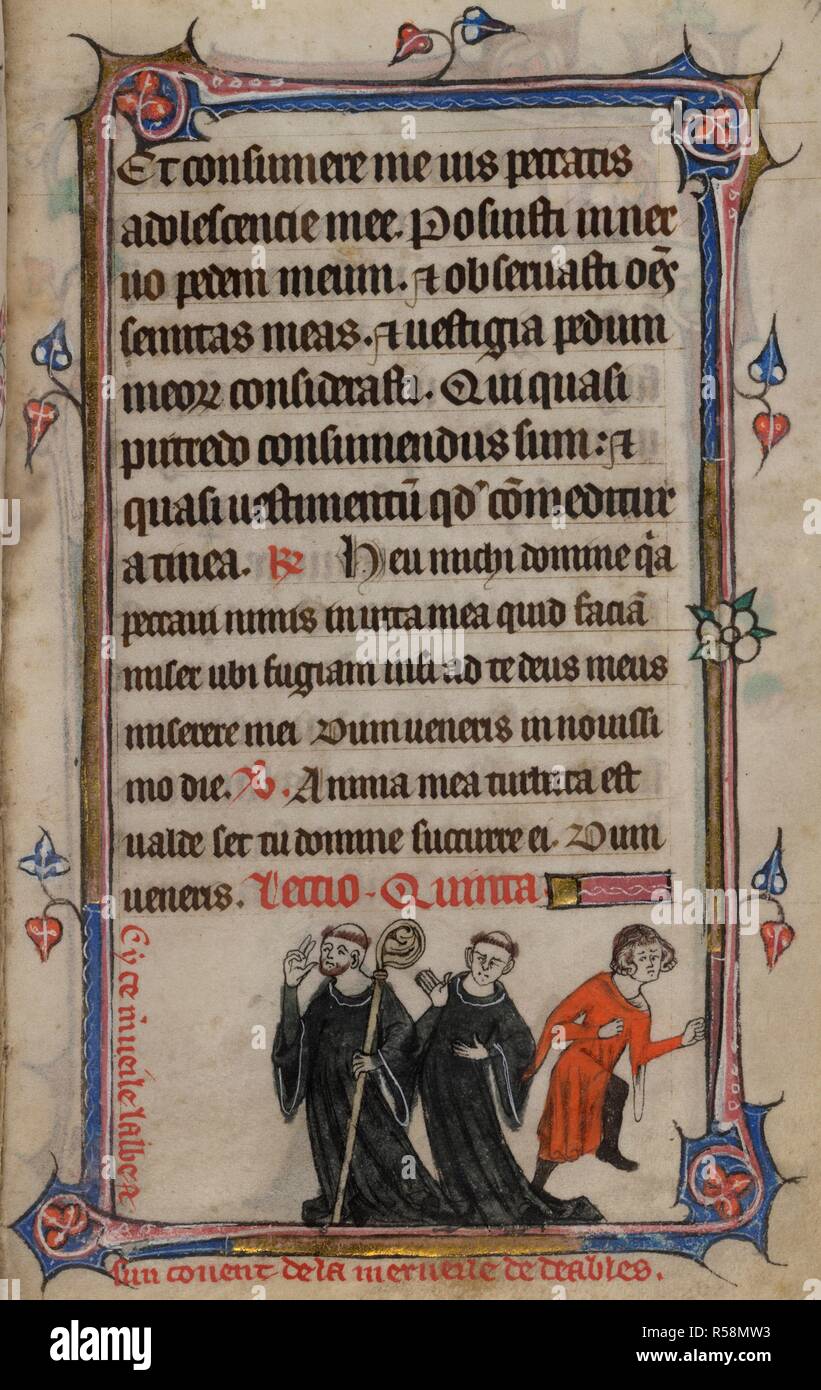 Et consumere me uis peccatis
adolescencie mee. Posuisti in ner
uo pedem meum. et obseruasti oēs
semitas meas. et uestigia pedum
meoꝝ considerasti. Qui quasi
putredo consumendus sum: et
quasi uestimentū qd' cōmeditur
a tinea. ℟ Heu michi domine q̄a
peccaui nimis in uita mea quid faciā
miser ubi fugiam nisi ad te deus meus
miserere mei Dum ueneris in nouissi
mo die. ℣. Anima mea turbata est
ualde set tu domine succurre ei. Dum
ueneris. Lectio. Quinta
Cy ce m'ueile labbe et
sun couent de la merueile de deables.
alamy
Image ID: R58MW3
www.alamy.com